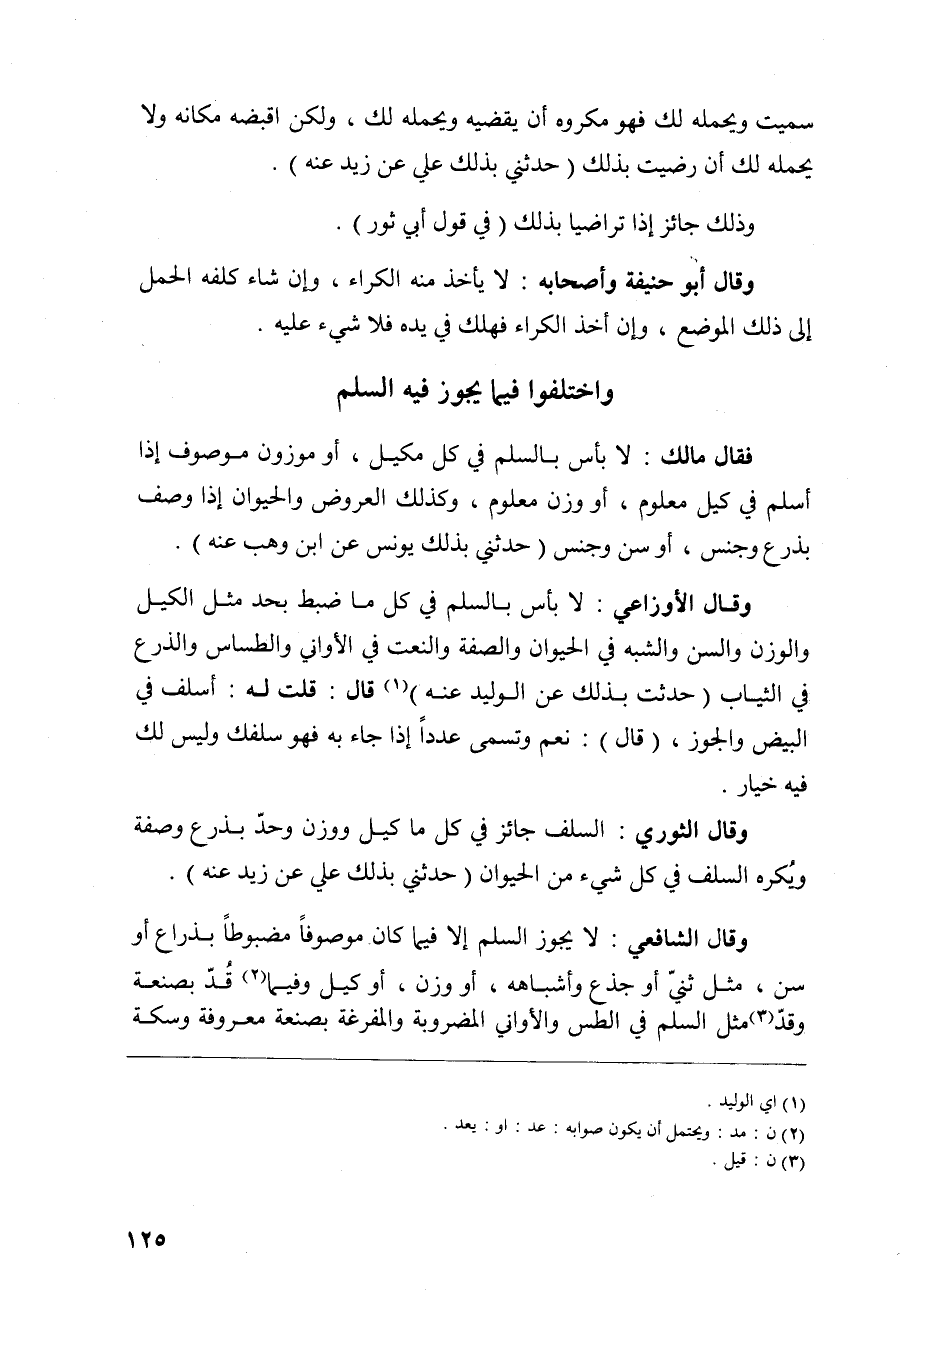 سميت ويحمله لك فهو مكروه أن يقضيه ويحمله لك ، ولكن اقبضه مكانه ولا
يحمله لك أن رضيت بذلك ( حدثني بذلك علي عن زيد عنه ) .
وذلك جائز إذا تراضيا بذلك ( في قول أبي ثور ) .
وقال أبو حنيفة وأصحابه : لا يأخذ منه الكراء ، وإن شاء كلفه الحمل
إلى ذلك الموضع ، وإن أخذ الكراء فهلك في يده فلا شيء عليه .
واختلفوا فيما يجوز فيه السلم
فقال مالك : لا بأس بالسلم في كل مكيل ، أو موزون موصوف إذا
أسلم في كيل معلوم ، أو وزن معلوم ، وكذلك العروض والحيوان إذا وصف
بذرع وجنس ، أو سن وجنس ( حدثني بذلك يونس عن ابن وهب عنه ) .
وقال الأوزاعي : لا بأس بالسلم في كل ما ضبط بحد مثل الكيل
والوزن والسن والشبه في الحيوان والصفة والنعت في الأواني والطساس والذرع
في الثياب ( حدثت بذلك عن الوليد عنه )(١) قال : قلت له : أسلف في
البيض والجوز ، ( قال ) : نعم وتسمى عدداً إذا جاء به فهو سلفك وليس لك
فيه خيار .
وقال الثوري : السلف جائز في كل ما كيل ووزن وحدّ بذرع وصفة
ويُكره السلف في كل شيء من الحيوان ( حدثني بذلك علي عن زيد عنه ) .
وقال الشافعي : لا يجوز السلم إلا فيما كان موصوفاً مضبوطاً بذراع أو
سن ، مثل ثنيّ أو جذع وأشباهه ، أو وزن ، أو كيل وفيما(٢) قُدّ بصنعة
وقدّ(٣) مثل السلم في الطس والأواني المضروبة والمفرغة بصنعة معروفة وسكة
(١) اي الوليد .
(٢) ن : مد : ويحتمل أن يكون صوابه : عد : او : يعد .
(٣) ن : قيل .
١٢٥